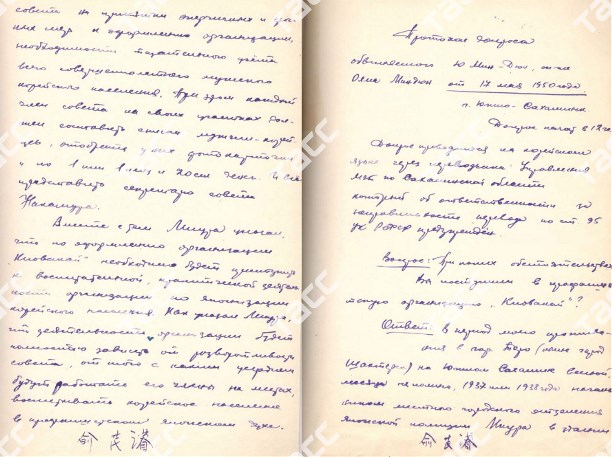 совета на принятии энергичных и
мер к оформлению организации,
необходимости тщательного учета
всего совершеннолетнего мужского
корейского населения. При этом каждый
член совета на своих участках дол-
жен составить списки мужчин-корей-
цев, отобрать у них фотокарточки
и по 1 иен
представить секретарю совета
Накамура.
Вместе с тем Миура указал,
что по оформлению организации
"Киовакай" необходимо будет приступить
к воспитательной, практической деятель-
ности организации по японизации
корейского населения. Как указал Миура,
что деятельность организации будет
полностью зависеть от разворотливости
совета, от того с каким усердием
будут работать его члены на местах,
воспитывать корейское население
в японском духе.
俞 茂 濬
Протокол допроса
обвиняемого Ю Мин он же
от 17 мая 1950 года
г. Южно-Сахалинск
Допрос начат в 12 час
Допрос проводится на корейском
языке через переводчика Управления
МГБ по Сахалинской области
который об ответственности за
неправильность перевода по ст. 95
УК РСФСР предупрежден.
Вопрос: При каких обстоятельствах
Вы поступили в
организацию "Киовакай"?
Ответ: В период моего прожива-
ния в гор. (ныне город
Шахтерск) на Южном Сахалине весной,
месяца не помню, 1937 или 1938 года началь-
ником местного городского отделения
японской полиции Миура в
俞 茂 濬
ТАСС